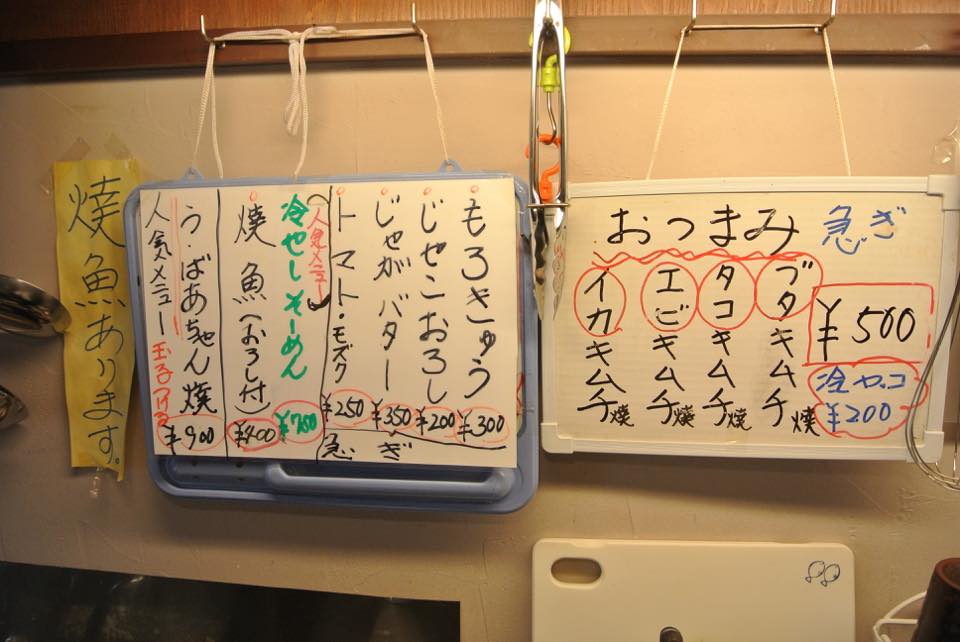 焼魚あります。
もろきゅう ¥300
じゃこおろし ¥200
じゃがバター ¥350
トマト・モズク ¥250
急ぎ
(人気メニュー)
冷やしそーめん ¥700
焼魚(おろし付) ¥400
う・ばあちゃん焼 ¥900
人気メニュー 玉子つける
おつまみ 急ぎ
ブタキムチ焼
タコキムチ焼
エビキムチ焼
イカキムチ焼
¥500
冷ヤッコ
¥200